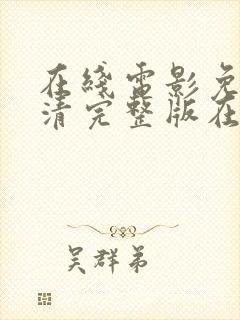 在綫電影免
清完整版在
吴群弟